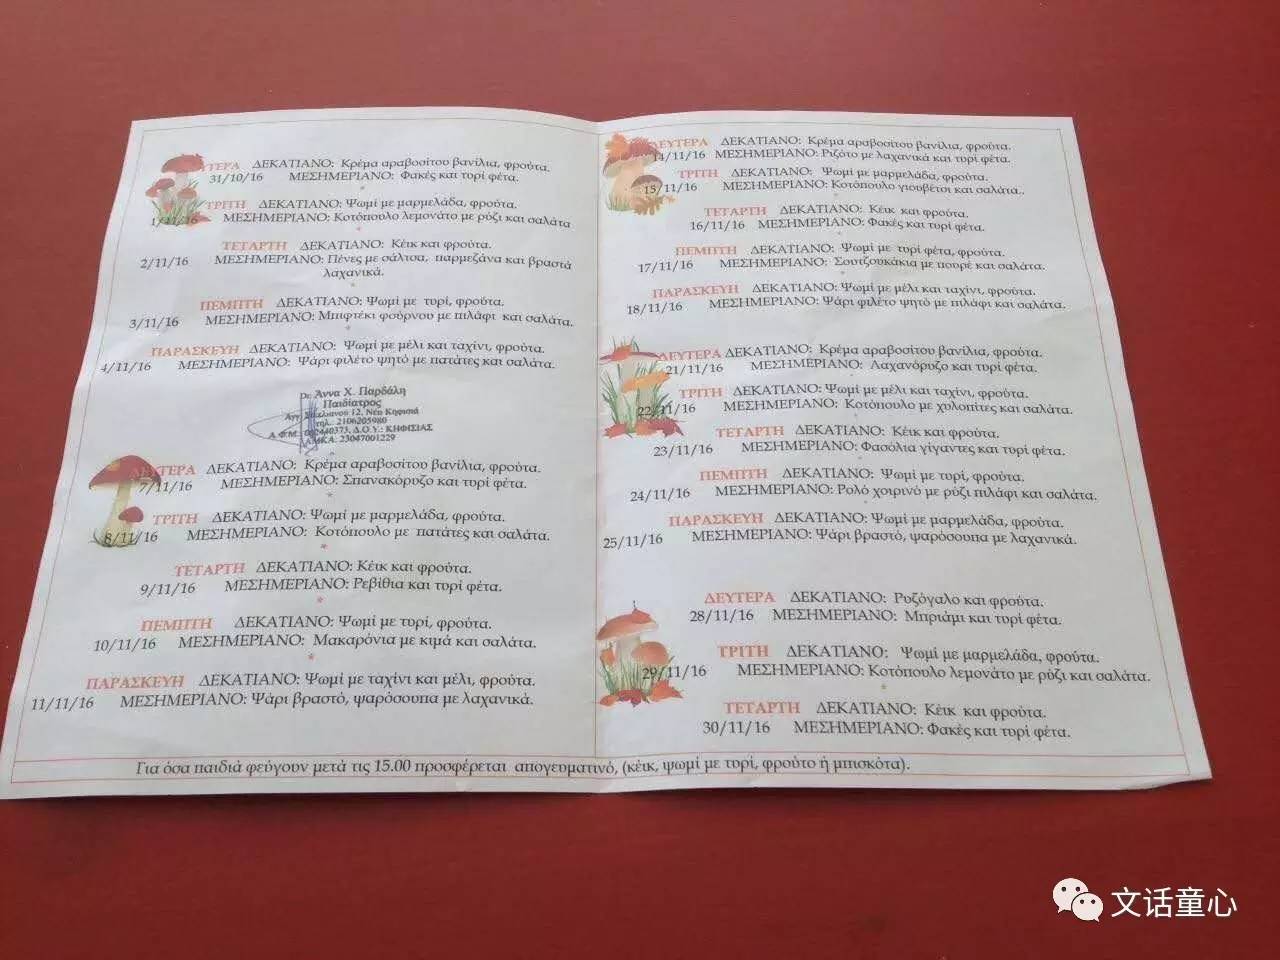 ΔΕΚΑΤΙΑΝΟ: Κρέμα αραβοσίτου βανίλια, φρούτα.
31/10/16 ΜΕΣΗΜΕΡΙΑΝΟ: Φακές και τυρί φέτα.
*
ΤΡΙΤΗ ΔΕΚΑΤΙΑΝΟ: Ψωμί με μαρμελάδα, φρούτα.
1/11/16 ΜΕΣΗΜΕΡΙΑΝΟ: Κοτόπουλο λεμονάτο με ρύζι και σαλάτα
*
ΤΕΤΑΡΤΗ ΔΕΚΑΤΙΑΝΟ: Κέικ και φρούτα.
2/11/16 ΜΕΣΗΜΕΡΙΑΝΟ: Πένες με σάλτσα, παρμεζάνα και βραστά
λαχανικά.
*
ΠΕΜΠΤΗ ΔΕΚΑΤΙΑΝΟ: Ψωμί με τυρί, φρούτα.
3/11/16 ΜΕΣΗΜΕΡΙΑΝΟ: Μπιφτέκι φούρνου με πιλάφι και σαλάτα.
*
ΠΑΡΑΣΚΕΥΗ ΔΕΚΑΤΙΑΝΟ: Ψωμί με μέλι και ταχίνι, φρούτα.
4/11/16 ΜΕΣΗΜΕΡΙΑΝΟ: Ψάρι φιλέτο ψητό με πατάτες και σαλάτα.
Dr Άννα Χ. Παρδάλη
Παιδίατρος
12, Νέα Κηφισιά
τηλ.: 2106205980
Α.Φ.Μ.: Δ.Ο.Υ.: ΚΗΦΙΣΙΑΣ
ΑΜΚΑ: 23047001229
ΔΕΥΤΕΡΑ ΔΕΚΑΤΙΑΝΟ: Κρέμα αραβοσίτου βανίλια, φρούτα.
7/11/16 ΜΕΣΗΜΕΡΙΑΝΟ: Σπανακόρυζο και τυρί φέτα.
*
ΤΡΙΤΗ ΔΕΚΑΤΙΑΝΟ: Ψωμί με μαρμελάδα, φρούτα.
8/11/16 ΜΕΣΗΜΕΡΙΑΝΟ: Κοτόπουλο με πατάτες και σαλάτα.
*
ΤΕΤΑΡΤΗ ΔΕΚΑΤΙΑΝΟ: Κέικ και φρούτα.
9/11/16 ΜΕΣΗΜΕΡΙΑΝΟ: Ρεβίθια και τυρί φέτα.
*
ΠΕΜΠΤΗ ΔΕΚΑΤΙΑΝΟ: Ψωμί με τυρί, φρούτα.
10/11/16 ΜΕΣΗΜΕΡΙΑΝΟ: Μακαρόνια με κιμά και σαλάτα.
*
ΠΑΡΑΣΚΕΥΗ ΔΕΚΑΤΙΑΝΟ: Ψωμί με ταχίνι και μέλι, φρούτα.
11/11/16 ΜΕΣΗΜΕΡΙΑΝΟ: Ψάρι βραστό, ψαρόσουπα με λαχανικά.
ΔΕΥΤΕΡΑ ΔΕΚΑΤΙΑΝΟ: Κρέμα αραβοσίτου βανίλια, φρούτα.
14/11/16 ΜΕΣΗΜΕΡΙΑΝΟ: Ριζότο με λαχανικά και τυρί φέτα.
ΤΡΙΤΗ ΔΕΚΑΤΙΑΝΟ: Ψωμί με μαρμελάδα, φρούτα.
15/11/16 ΜΕΣΗΜΕΡΙΑΝΟ: Κοτόπουλο γιουβέτσι και σαλάτα..
ΤΕΤΑΡΤΗ ΔΕΚΑΤΙΑΝΟ: Κέικ και φρούτα.
16/11/16 ΜΕΣΗΜΕΡΙΑΝΟ: Φακές και τυρί φέτα.
ΠΕΜΠΤΗ ΔΕΚΑΤΙΑΝΟ: Ψωμί με τυρί φέτα, φρούτα.
17/11/16 ΜΕΣΗΜΕΡΙΑΝΟ: Σουτζουκάκια με πουρέ και σαλάτα.
ΠΑΡΑΣΚΕΥΗ ΔΕΚΑΤΙΑΝΟ: Ψωμί με μέλι και ταχίνι, φρούτα.
18/11/16 ΜΕΣΗΜΕΡΙΑΝΟ: Ψάρι φιλέτο ψητό με πιλάφι και σαλάτα.
ΔΕΥΤΕΡΑ ΔΕΚΑΤΙΑΝΟ: Κρέμα αραβοσίτου βανίλια, φρούτα.
21/11/16 ΜΕΣΗΜΕΡΙΑΝΟ: Λαχανόρυζο και τυρί φέτα.
ΤΡΙΤΗ ΔΕΚΑΤΙΑΝΟ: Ψωμί με μέλι και ταχίνι, φρούτα.
22/11/16 ΜΕΣΗΜΕΡΙΑΝΟ: Κοτόπουλο με χυλοπίτες και σαλάτα.
ΤΕΤΑΡΤΗ ΔΕΚΑΤΙΑΝΟ: Κέικ και φρούτα.
23/11/16 ΜΕΣΗΜΕΡΙΑΝΟ: Φασόλια γίγαντες και τυρί φέτα.
ΠΕΜΠΤΗ ΔΕΚΑΤΙΑΝΟ: Ψωμί με τυρί, φρούτα.
24/11/16 ΜΕΣΗΜΕΡΙΑΝΟ: Ρολό χοιρινό με ρύζι πιλάφι και σαλάτα.
ΠΑΡΑΣΚΕΥΗ ΔΕΚΑΤΙΑΝΟ: Ψωμί με μαρμελάδα, φρούτα.
25/11/16 ΜΕΣΗΜΕΡΙΑΝΟ: Ψάρι βραστό, ψαρόσουπα με λαχανικά.
ΔΕΥΤΕΡΑ ΔΕΚΑΤΙΑΝΟ: Ρυζόγαλο και φρούτα.
28/11/16 ΜΕΣΗΜΕΡΙΑΝΟ: Μπριάμι και τυρί φέτα.
ΤΡΙΤΗ ΔΕΚΑΤΙΑΝΟ: Ψωμί με μαρμελάδα, φρούτα.
29/11/16 ΜΕΣΗΜΕΡΙΑΝΟ: Κοτόπουλο λεμονάτο με ρύζι και σαλάτα.
*
ΤΕΤΑΡΤΗ ΔΕΚΑΤΙΑΝΟ: Κέικ και φρούτα.
30/11/16 ΜΕΣΗΜΕΡΙΑΝΟ: Φακές και τυρί φέτα.
Για όσα παιδιά φεύγουν μετά τις 15.00 προσφέρεται απογευματινό, (κέικ, ψωμί με τυρί, φρούτο ή μπισκότα).
文话童心